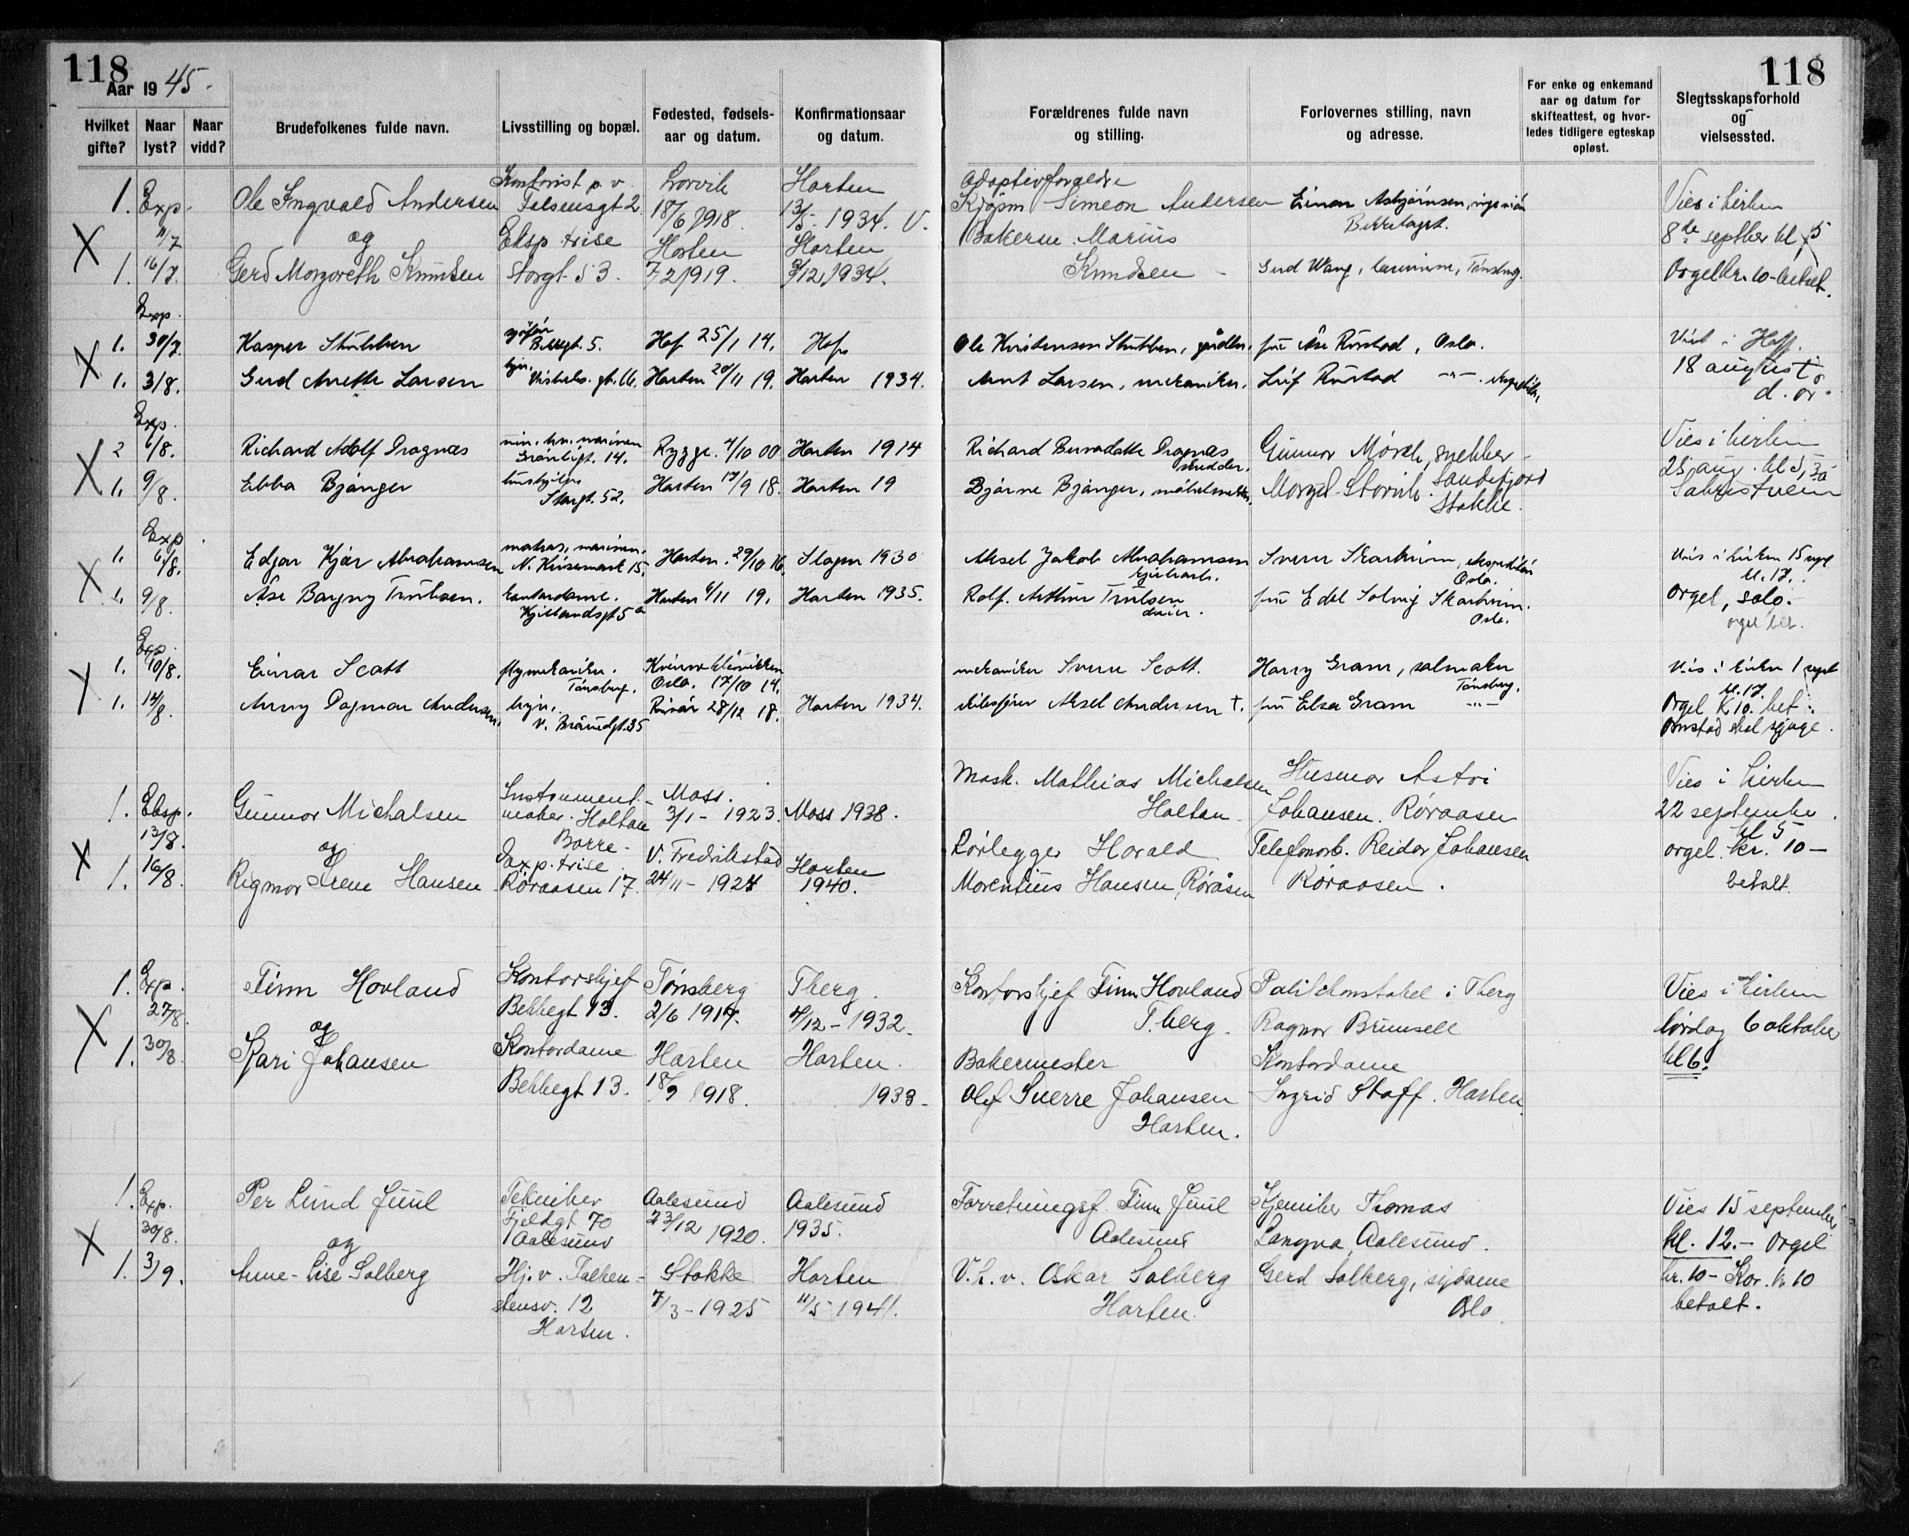 118
118
Aar 1945.
Hvilket gifte?
Naar lyst?
Naar vidd?
Brudefolkenes fulde navn.
Livsstilling og bopæl.
Fødested, fødsels- aar og datum.
Konfirmationsaar og datum.
Forældrenes fulde navn og stilling.
Forlovernes stilling, navn og adresse.
For enke og enkemand aar og datum for skifteattest, og hvorledes tidligere egteskap opløst.
Slegtsskapsforhold og vielsessted.
Kontorist p. v. Larvik Horten Adoptivforældre
1. Exp. Ole Ingvald Andersen Falsensgt 2 18/6 1918 1934. V. Simeon Andersen Einar Asbjørnsen, Vies i kirken
11/7 og Eksp. trise Horten Horten Bakersv. Marius Bekkelaget. 8de septber kl 5
1. 16/7. Gerd Margareth Knudsen Storgt. 53. 7/2 1919. 3/12 1934. Knudsen - Gerd Wang, Tønsberg. Orgel kr. 10 - betalt.
Exp.
1. 30/7. Kasper Stubben 5. Hof 25/1 14. Hof Ole Kristensen Stubben, fru Åse Rørstad, Oslo. Viet i Hof.
1. 3/8. Gerd Anette Larsen Horten 20/11 19. Horten 1934. Arnt Larsen, mekaniker. Leif Rustad -"- 18 august
d. å.
Exp.
2 6/8. Richard Adolf Dragnæs min. kv. marinen Grønligt. 14. Rygge. 4/10 00 Horten 1914 Richard Bernadotte Dragnæs skredder. Gunnar Mørch, snekker - Vies i kirken
1. 9/8. Ebba Bjånger Storgt. 52. Horten 17/9 18. Horten 19 Bjarne Bjånger, møbelsnekker Sandefjord Stokke. 25 aug. kl 5,30 Sakristveien
Exp.
1. 6/8. Edgar Kjær Abrahamsen matros, marinen. 15. Horten. 29/10 16. Slagen 1930 Aksel Jakob Abrahamsen Sverre Skarheim, ekspeditør Oslo. Vies i kirken 15 sept kl. 17.
1. 9/8. Åse Borgny Trulsen. kontordame. Kjellandsgt. 5a Horten 6/11 19. Horten 1935. Rolf Arthur Trulsen fru Edel Solveig Skarheim. Oslo. Orgel, solo.
orgel bet.
Exp.
1. 10/8. Einar Scott flymekaniker. Tønsberg. Kvinneklinikken Oslo. 17/10 14. mekaniker Sverre Scott. Harry Gram, salmaker Tønsberg. Vies i kirken 1 sept kl. 17.
1. 14/8. Anny Dagmar Andersen, hjm. V. Braudgt. 35 28/12 18. Horten 1934. Aksel Andersen †. fru Elsa Gram -"- Orgel K 10. bet.
skal synge.
Mask. Mathias Michalsen Husmor Astri Vies i kirken
1. Eksp. Gunnar Michalsen Instrument- maker. Holtan Borre - Moss. 3/1 - 1923. Moss 1938. Holtan. Johansen. Røraasen 22 september kl 5
13/8. og Exp. trise V. Fredrikstad Horten Rørlegger Harald Telefonarb. Reidar Johansen orgel. kr. 10 -
1. 16/8. Rigmor Irene Hansen Røraasen 17. 24/11 - 1924 1940. Morentius Hansen, Røråsen Røraasen. betalt.
1. Exp. Finn Hovland Kontorskjef Tønsberg Tberg. Kontorskjef Finn Hovland Politikonstabel i Tberg Vies i kirken
27/8. og Bekkegt 13. 2/6 1917. 4/12 - 1932. T.berg. Ragnar Brunsell lørdag 6 oktober
1. 30/8. Kari Johansen Kontordame Horten Horten. Bakermester Kontordame kl 6.
Bekkegt 13. 18/9 1918. 1933. Olaf Sverre Johansen Ingrid Staff. Horten
Horten.
1. Exp. Per Lund Juul Tekniker Aalesund Aalesund Forretningsf. Finn Juul Kjemiker Thomas Vies 15 september
30/8. og Fjeldgt 70 Aalesund 23/12 1920. 1935. Aalesund Langva Aalesund. kl. 12. - Orgel
1. 3/9. Anne-Lise Solberg Hj. v. Falken- Stokke Horten V.L.v. Oskar Solberg Gerd Solberg, sydame kr. 10 - Kor. kr 10
stensv. 12 7/3 - 1925 11/5 1941. Horten. Oslo betalt.
Horten.